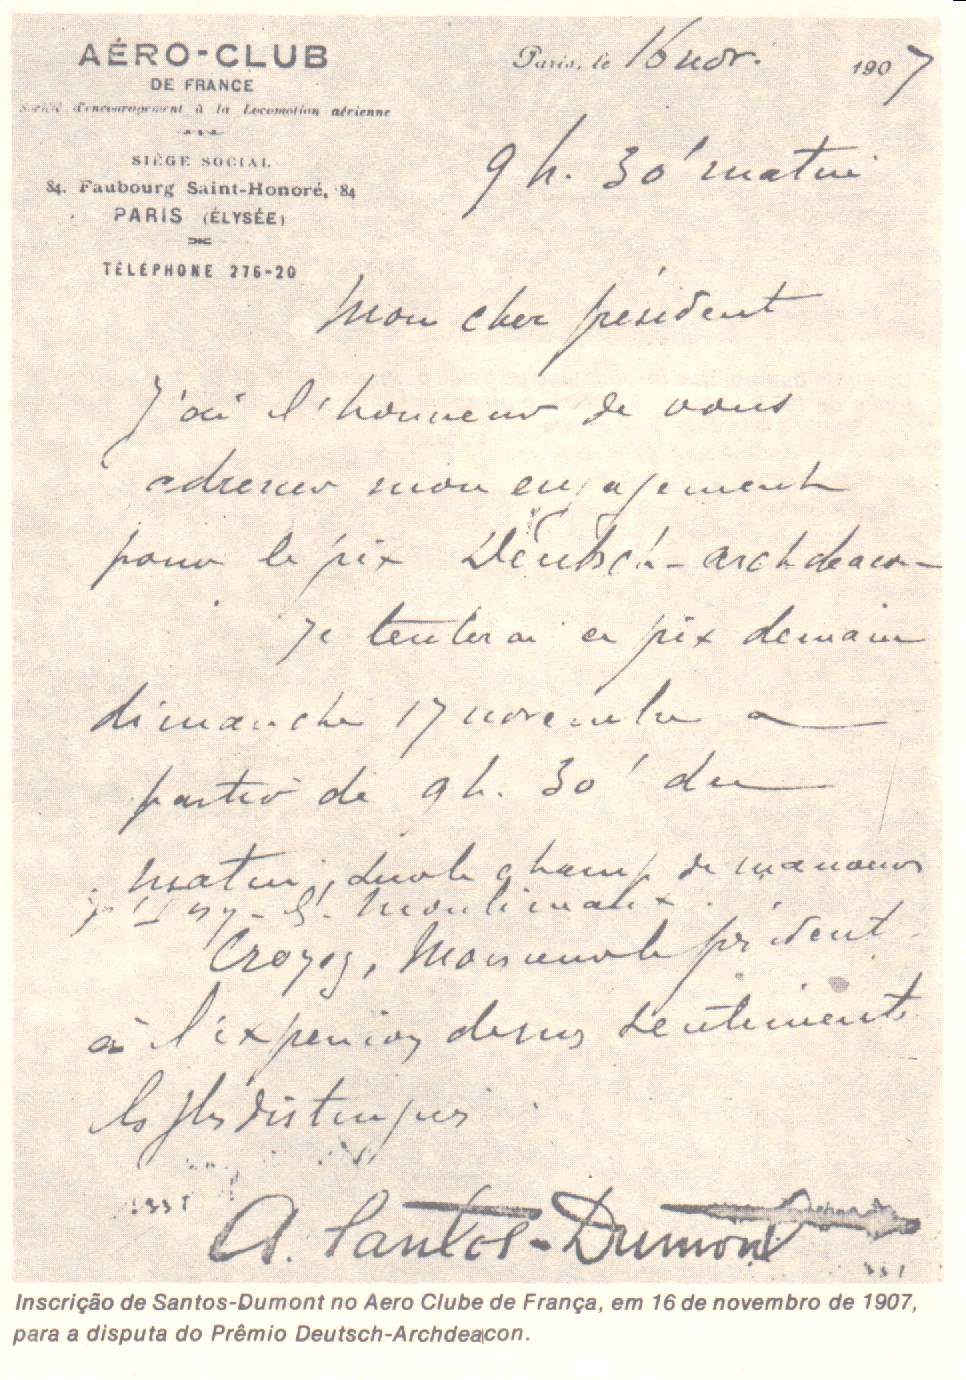 AÉRO-CLUB
DE FRANCE
Société d'encouragement à la Locomotion aérienne
SIÈGE SOCIAL
84, Faubourg Saint-Honoré, 84
PARIS (ÉLYSÉE)
TÉLÉPHONE 276-20
Paris, le 16 nov. 1907
9 h. 30' matin
Mon cher président
J'ai l'honneur de vous
adresser mon engagement
pour le prix Deutsch-Archdeacon
Je tenterai ce prix demain
dimanche 17 novembre a
partir de 9 h. 30' du
matin, sur le champ de manœuvres
d'Issy-les-Moulineaux.
Croyez, Monsieur le président
à l'expression de mes sentiments
les plus distingués
A. Santos-Dumont
Inscrição de Santos-Dumont no Aero Clube de França, em 16 de novembro de 1907,
para a disputa do Prêmio Deutsch-Archdeacon.